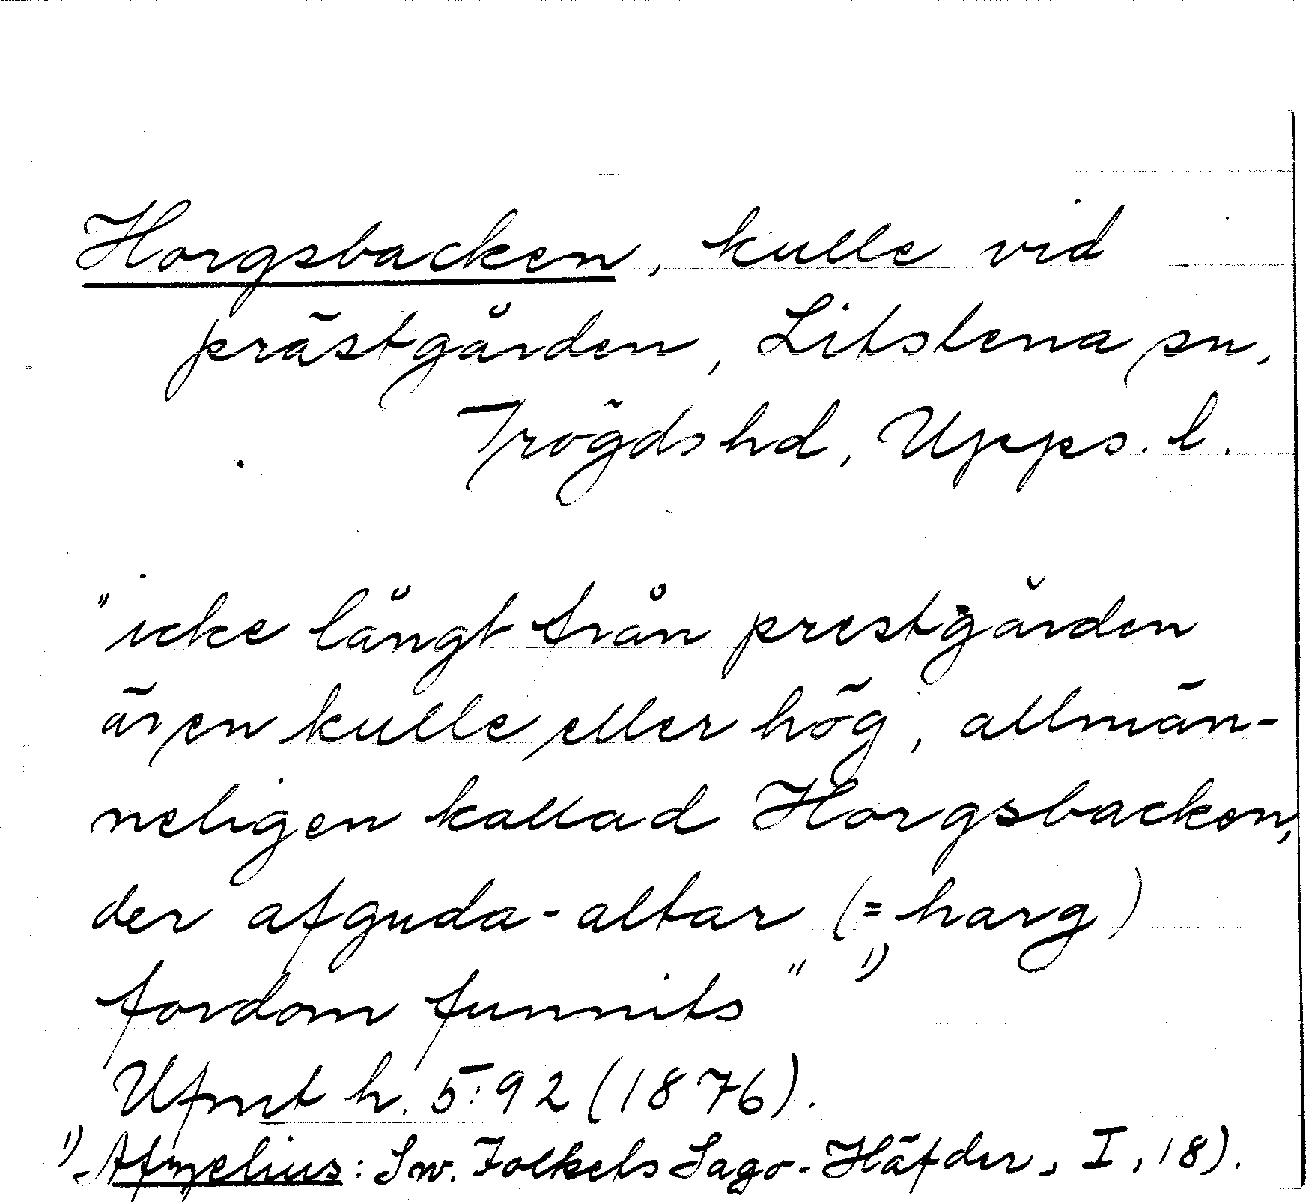 Horgsbacken, kulle vid
prästgården, Litslena sn,
Trögds hd, Upps. l.
"icke långt från prestgården
är en kulle eller hög, allmän-
neligen kallad Horgsbacken,
der afguda-altar (= harg)
fordom funnits" 1)
Ufmt h. 5:92 (1876).
1) Afzelius: Sw. Folkets Sago-Häfder, I, 18).